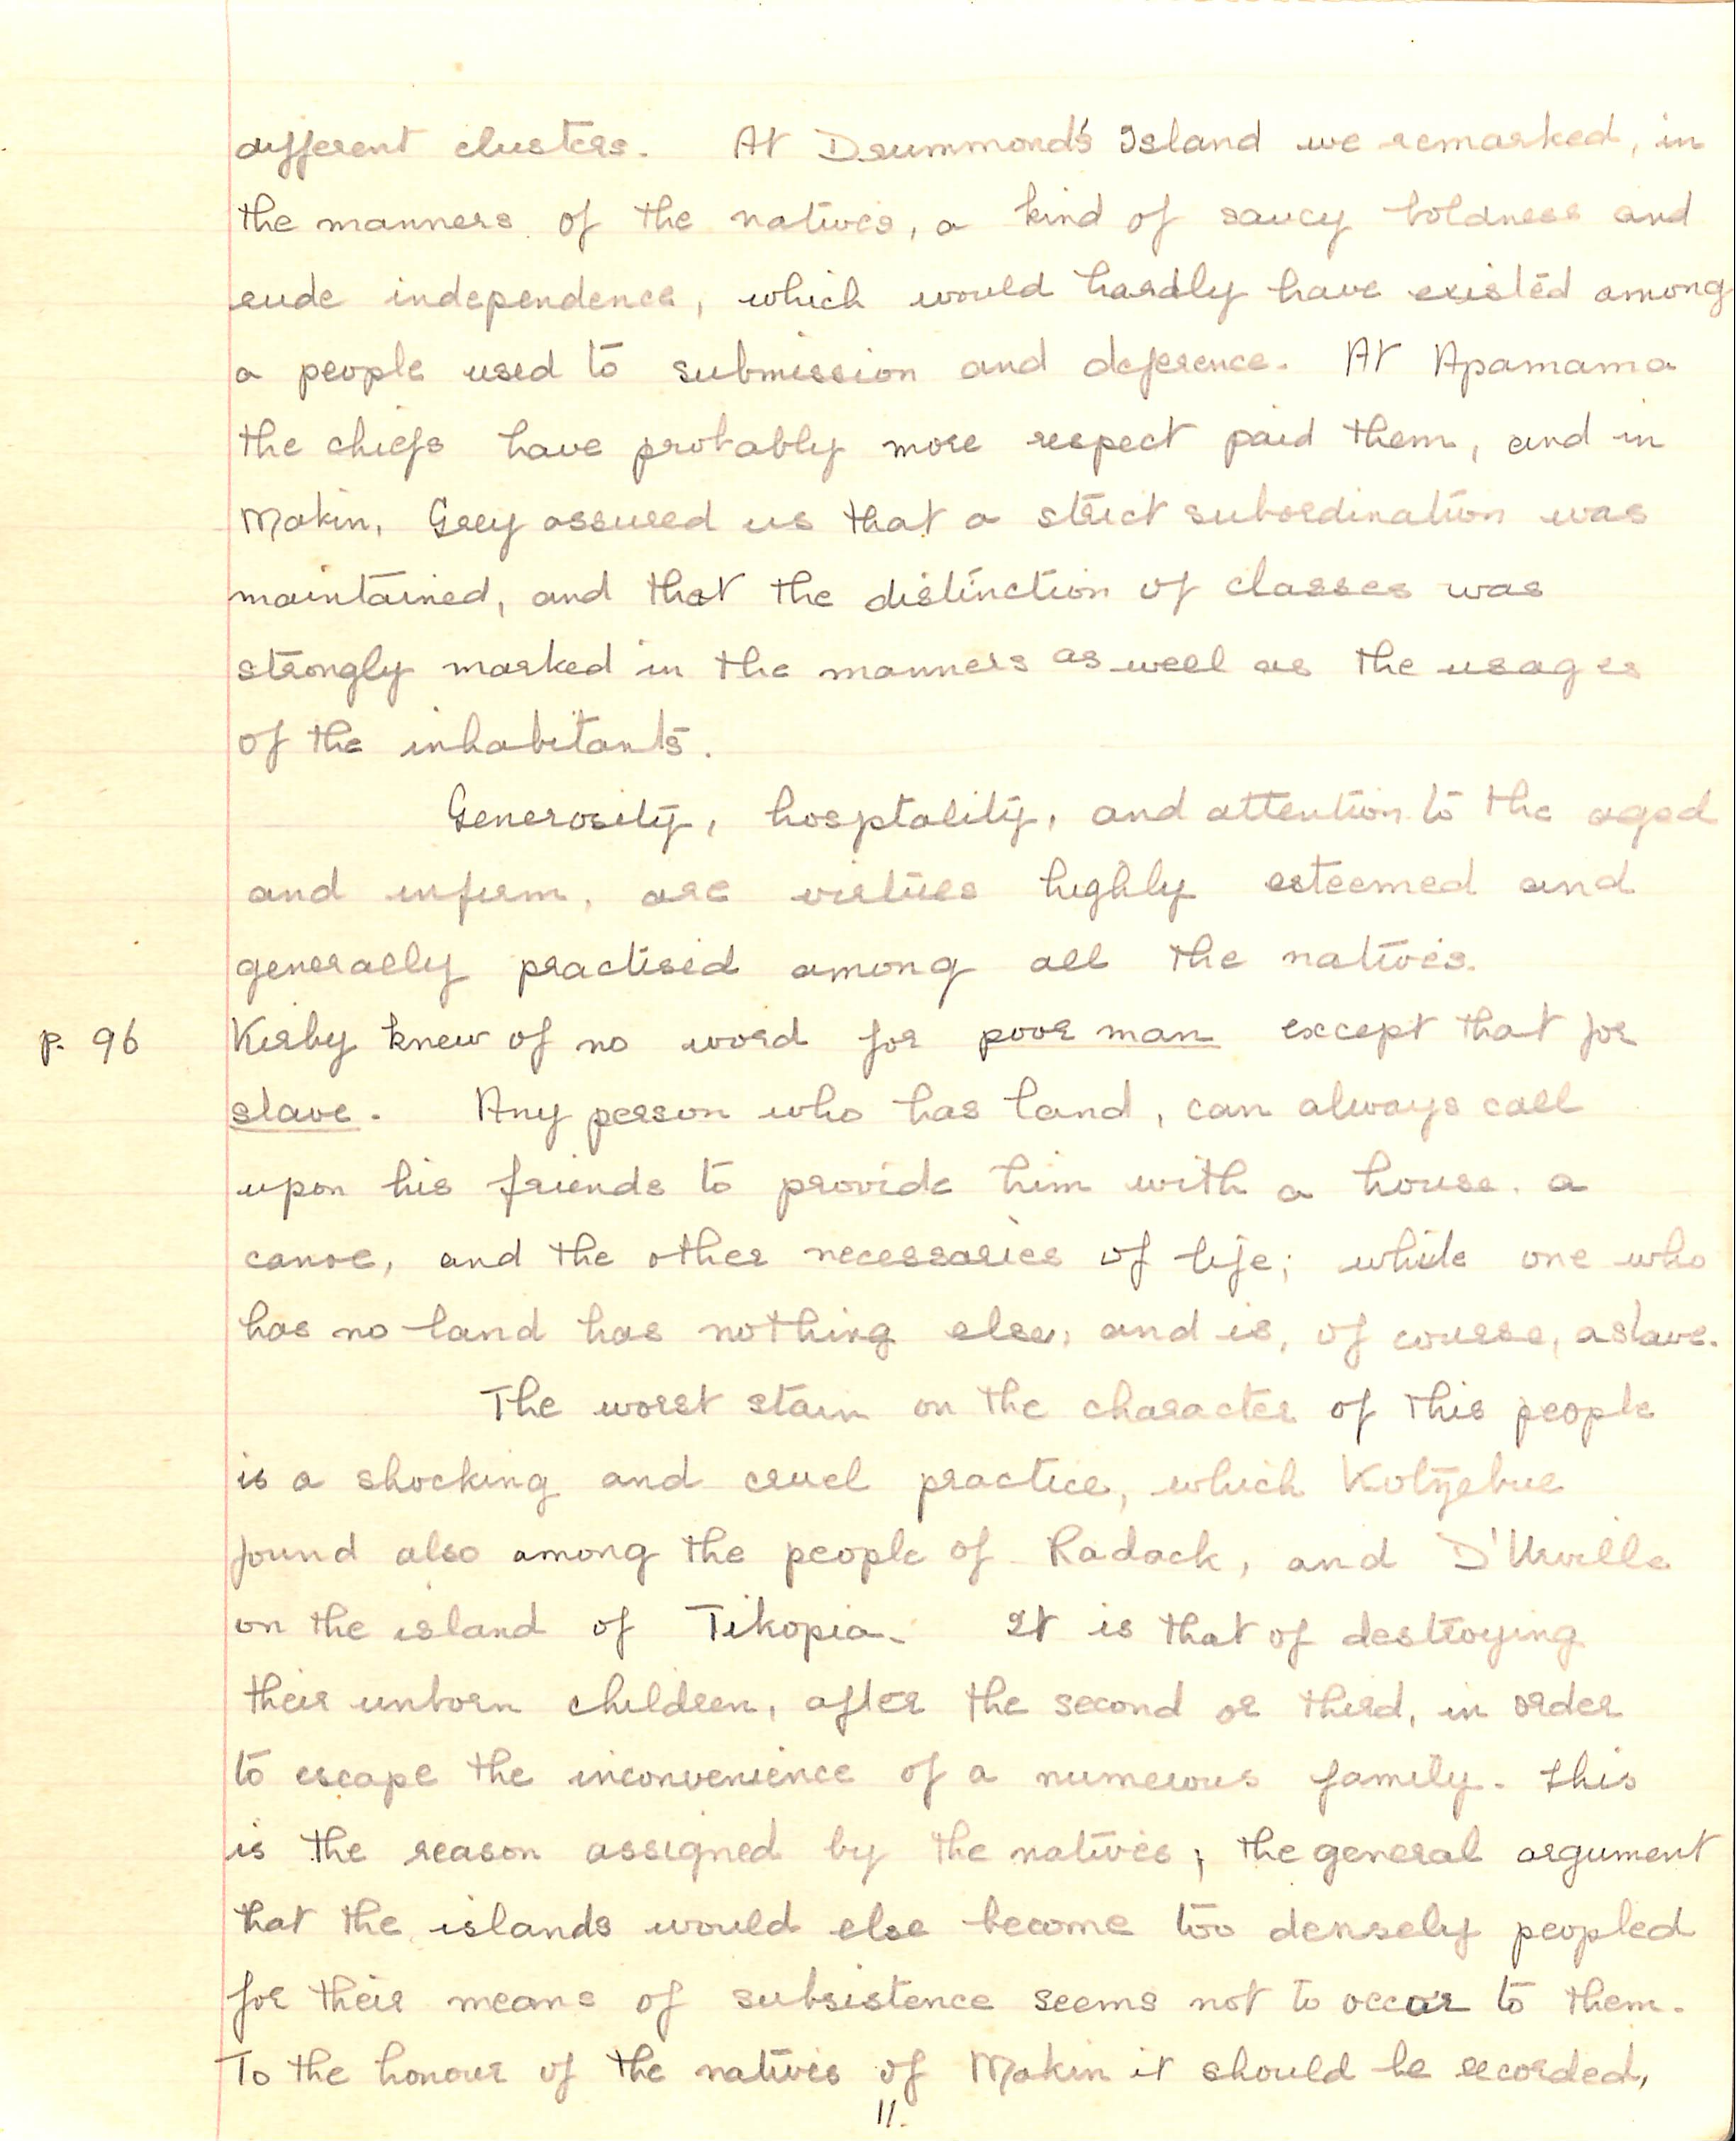 different clusters. At Drummond's Island we remarked, in
the manners of the natives, a kind of saucy boldness and
rude independence, which would hardly have existed among
a people used to submission and deference. At Apamama
the chiefs have probably more respect paid them, and in
Makin, Grey assured us that a strict subordination was
maintained, and that the distinction of classes was
strongly marked in the manners as well as the usages
of the inhabitants.
Generosity, hosptality, and attention to the aged
and infirm, are virtues highly esteemed and
generally practised among all the natives.
p. 96 Kirby knew of no word for poor man except that for
slave. Any person who has land, can always call
upon his friends to provide him with a house, a
canoe, and the other necessaries of life; while one who
has no land has nothing else, and is, of course, a slave.
The worst stain on the character of this people
is a shocking and cruel practice, which Kotzebue
found also among the people of Radack, and D'Urville
on the island of Tikopia. It is that of destroying
their unborn children, after the second or third, in order
to escape the inconvenience of a numerous family. This
is the reason assigned by the natives; the general argument
that the islands would else become too densely peopled
for their means of subsistence seems not to occur to them.
To the honour of the natives of Makin it should be recorded,
11.